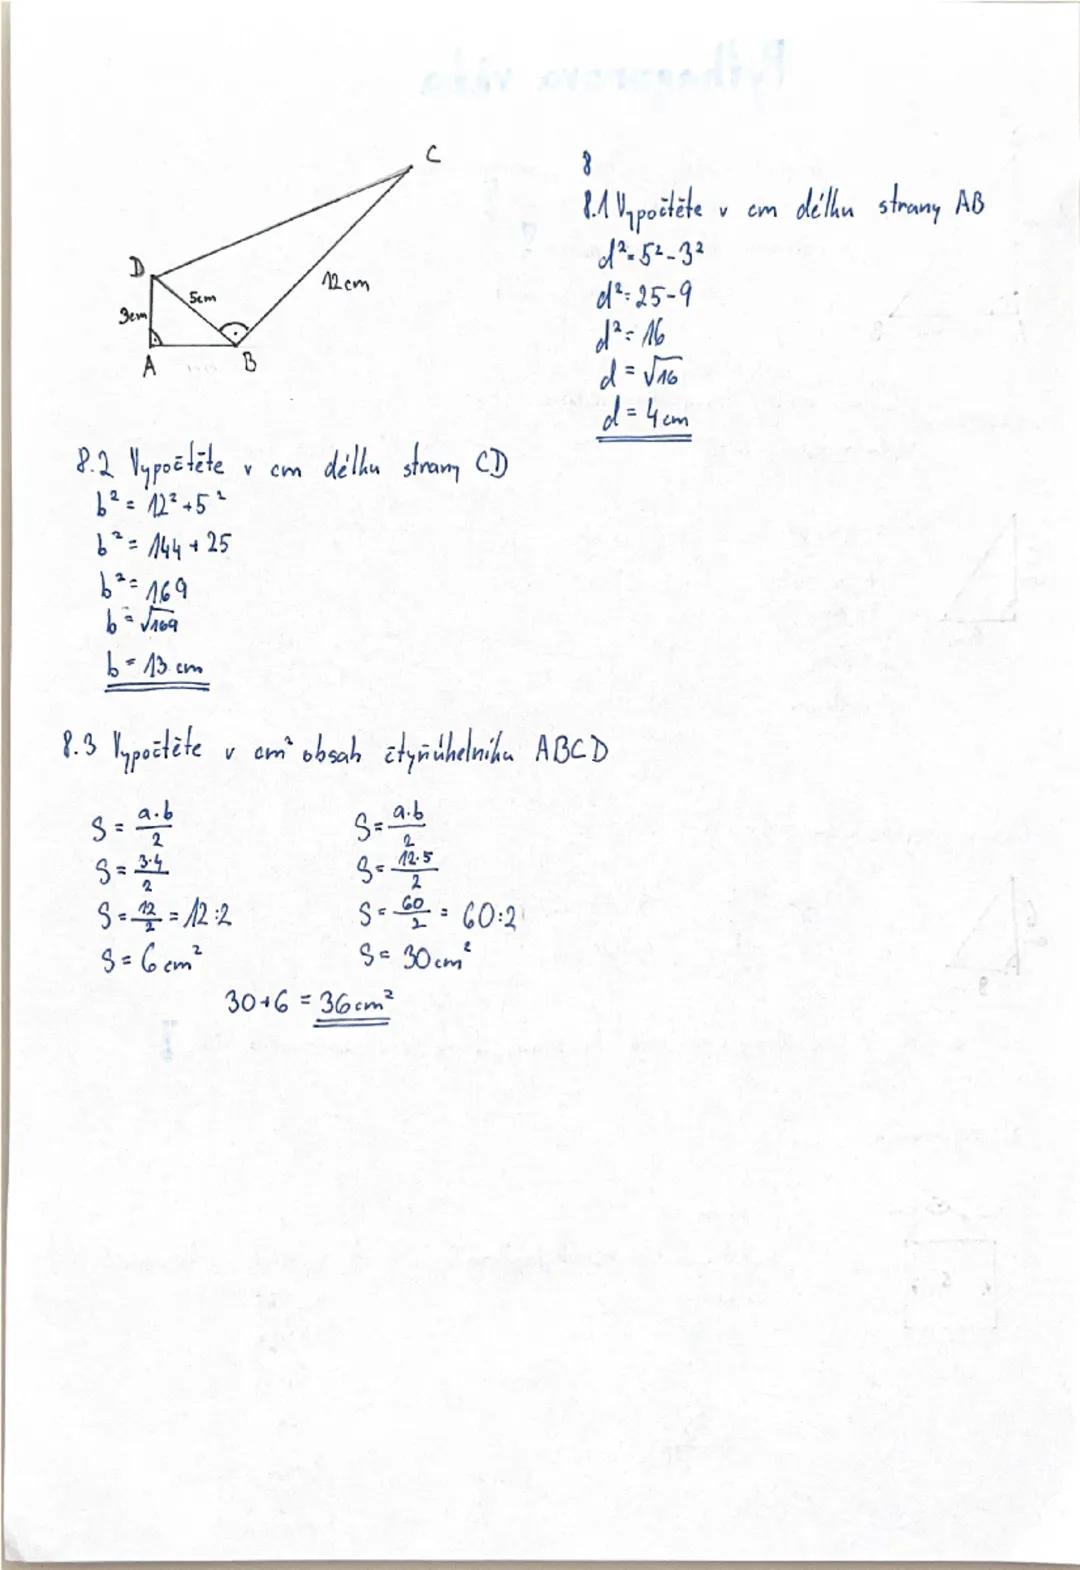 C
D
5cm
12cm
3cm
A
B
8
8.1 Vypočtěte v cm délku strany AB
d² = 5² - 3²
d² = 25 - 9
d² = 16
d = √16
d = 4 cm
8.2 Vypočtěte v cm délku strany CD
b² = 12² + 5²
b² = 144 + 25
b² = 169
b = √169
b = 13 cm
8.3 Vypočtěte v cm² obsah čtyřúhelníku ABCD
S = a·b/2
S = 3·4/2
S = 12/2 = 12:2
S = 6 cm²
S = a·b/2
S = 12·5/2
S = 60/2 = 60:2
S = 30 cm²
30+6 = 36 cm²